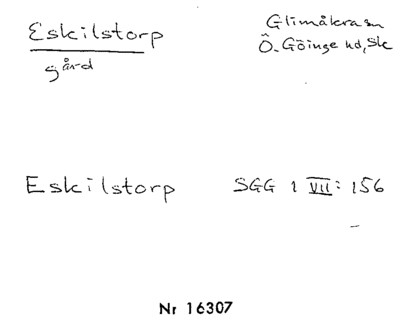 Eskilstorp
gård
Glimåkra sn
Ö. Göinge hd, Sk
Eskilstorp SGG 1 VII: 156
Nr 16307